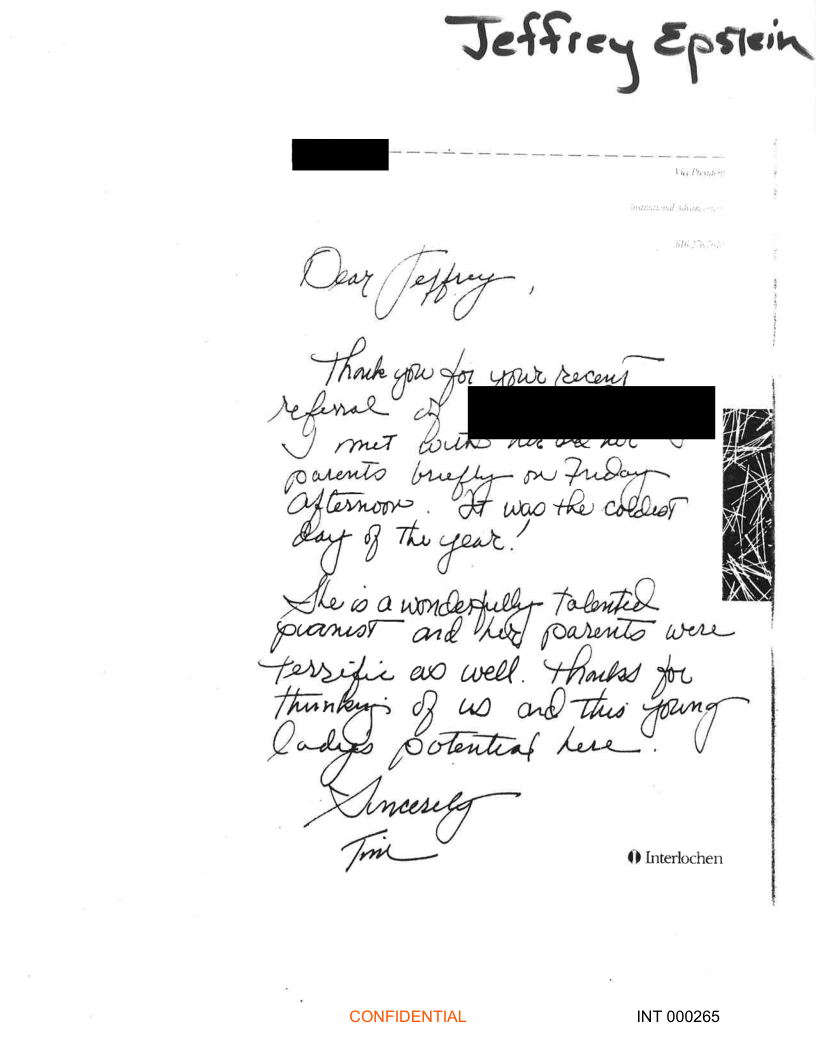 Jeffrey Epstein
Vice President
Institutional Advancement
Dear Jeffrey,
Thank you for your recent
referral of
I met with her and her
parents briefly on Friday
afternoon. It was the coldest
day of the year!
She is a wonderfully talented
pianist and her parents were
terrific as well. Thanks for
thinking of us and this young
lady's potential here.
Sincerely
Tim
Interlochen
CONFIDENTIAL
INT 000265